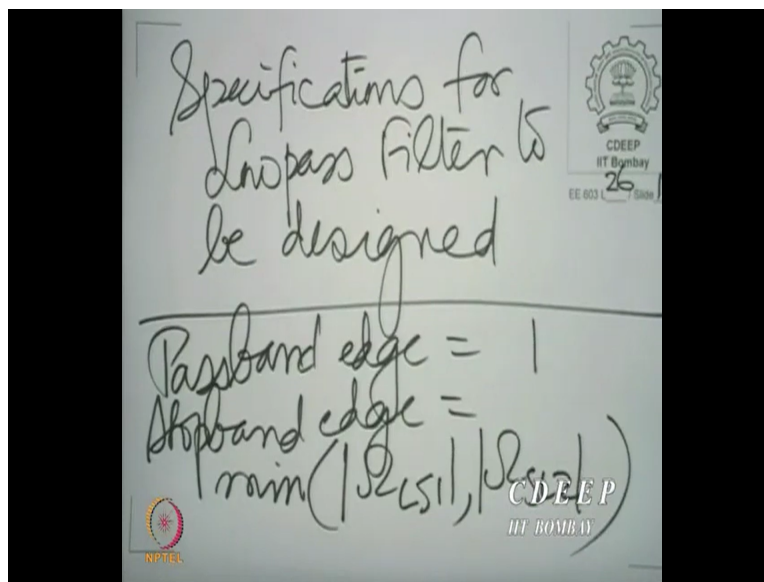 Specifications for
Lowpass Filter to
be designed
CDEEP
IIT Bombay
EE 603 L 26 / Slide 1
Passband edge = 1
Stopband edge =
min(|ΩLS1|, |ΩLS2|)
CDEEP
IIT BOMBAY
NPTEL